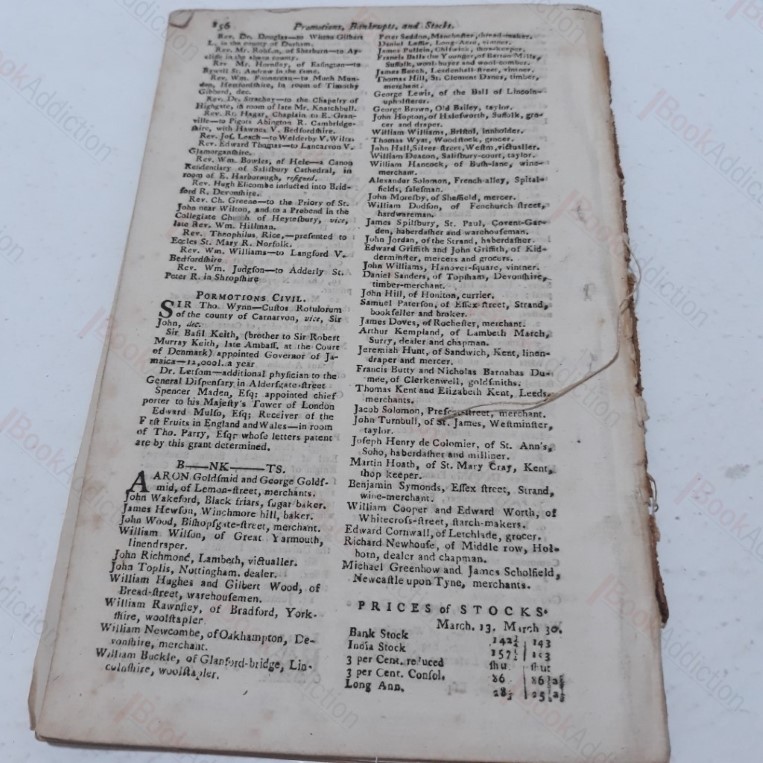 Promotions, Bankrupts, and Stocks.
Rev. Dr. Douglas—to
L. in the county of Durham.
Rev. Mr. of Sherburn—to Ay-
cliffe in the same county.
Rev. Mr. of Easington—to
Bywell St. Andrew in the same.
Rev. Wm. to Much Mun-
den, Hertfordshire, in room of Timothy
Gibberd, dec.
Rev. Dr. Strachey—to the Chapelry of
Highgate, in room of late Mr. Knatchbull.
Rev. Ro. Hagar, Chaplain to E. Gran-
ville—to Papus Abington R. Cambridge-
shire, with Hawnes V. Bedfordshire.
Rev. Jos. Leach—to V. Wilts.
Rev. Edward Thomas—to Lancarvon V.
Glamorganshire.
Rev. Wm. Bowles, of Hele—a Canon
Residentiary of Salisbury Cathedral, in
room of E. Harborough, resigned.
Rev. Hugh Elicombe inducted into Bid-
ford R. Devonshire.
Rev. Ch. Greene—to the Priory of St.
John near Wilton, and to a Prebend in the
Collegiate Church of Heytesbury, vice,
late Rev. Wm. Hillman.
Rev. Theophilus Rice,—presented to
Eccles St. Mary R. Norfolk.
Rev. Wm. Williams—to Langford V.
Bedfordshire
Rev. Wm. Judgson—to Adderly St.
Peter R. in Shropshire
PORMOTIONS CIVIL.
SIR Tho. Wynn—Custos Rotulorum
of the county of Carnarvon, vice, Sir
John, dec.
Sir Basil Keith, (brother to Sir Robert
Murray Keith, late Ambass. at the Court
of Denmark) appointed Governor of Ja-
maica—12,000l. a year
Dr. Letsom—additional physician to the
General Dispensary in Aldersgate-street
Spencer Maden, Esq; appointed chief
porter to his Majesty's Tower of London
Edward Mulso, Esq; Receiver of the
First Fruits in England and Wales—in room
of Tho. Parry, Esq; whose letters patent
are by this grant determined.
B—NK—TS.
AARON Goldsmid and George Golds-
mid, of Lemon-street, merchants.
John Wakeford, Black friars, sugar baker.
James Hewson, Winchmore hill, baker.
John Wood, Bishopsgate-street, merchant.
William Wilson, of Great Yarmouth,
linendraper.
John Richmond, Lambeth, victualler.
John Toplis, Nottingham. dealer.
William Hughes and Gilbert Wood, of
Bread-street, warehousemen.
William Rawnsley, of Bradford, York-
shire, woolstapler
William Newcombe, of Oakhampton, De-
vonshire, merchant.
William Buckle, of Glanford-bridge, Lin-
colnshire, woolstapler.
Peter Seddon, Manchester, thread-maker.
Daniel Long-Acre,
James Chiswick, shopkeeper.
Francis Balls the Younger, of
Suffolk, wool-buyer and wool-comber.
James Beech, Leadenhall-street, vintner.
Thomas Hill, St. Clement Danes, timber,
merchant.
George Lewis, of the Bail of Lincoln-
upholsterer.
George Brown, Old Bailey, taylor.
John Hopton, of Halesworth, Suffolk, gro-
cer and draper.
William Williams, Bristol, innholder.
Thomas Wyat, Woodstock, grocer.
John Hall, Silver-street, Westm. victualler.
William Deason, Salisbury-court, taylor.
William Hancock, of Bush-lane, wine-
merchant.
Alexander Solomon, French-alley, Spital-
fields, salesman.
John Moresby, of Sheffield, mercer.
William Dodson, of Fenchurch street,
hardwareman.
James Spilsbury, St. Paul, Covent-Gar-
den, haberdasher and warehouseman.
John Jordan, of the Strand, haberdasher
Edward Griffith and John Griffith, of Kid-
derminster, mercers and grocers.
John Williams, Hanover-square, vintner.
Daniel Sanders, of Topsham, Devonshire,
timber-merchant.
John Hill, of Honiton, currier.
Samuel Paterson, of Essex street, Strand,
bookseller and broker.
James Doves, of Rochester, merchant.
Arthur Kempland, of Lambeth Marsh,
Surry, dealer and chapman.
Jeremiah Hunt, of Sandwich, Kent, linen-
draper and mercer.
Francis Butty and Nicholas Barnabas Du-
mee, of Clerkenwell, goldsmiths.
Thomas Kent and Elizabeth Kent, Leeds,
merchants.
Jacob Solomon, Prescot-street, merchant.
John Turnbull, of St. James, Westminster,
taylor.
Joseph Henry de Colomier, of St. Ann's,
Soho, haberdasher and milliner.
Martin Hoath, of St. Mary Cray, Kent,
shop keeper.
Benjamin Symonds, Essex street, Strand,
wine-merchant.
William Cooper and Edward Worth, of
Whitecross-street, starch-makers.
Edward Cornwall, of Letchlade, grocer.
Richard Newhouse, of Middle row, Hol-
born, dealer and chapman.
Michael Greenhow and James Scholfield,
Newcastle upon Tyne, merchants.
PRICES of STOCKS.
March. 13. March 30.
Bank Stock 142½ 143
India Stock 157½
3 per Cent. reduced shut shut
3 per Cent. Consol. 86
Long Ann.
BookAddiction